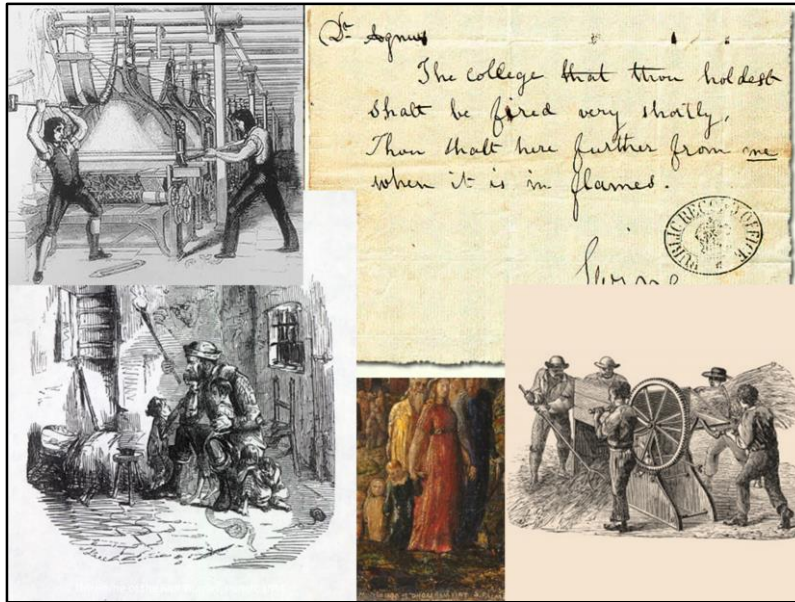 Dr
The college that thou holdest
Shalt be fired very shortly.
Thou shalt here further from me
when it is in flames.
Swing
PUBLIC RECORD OFFICE